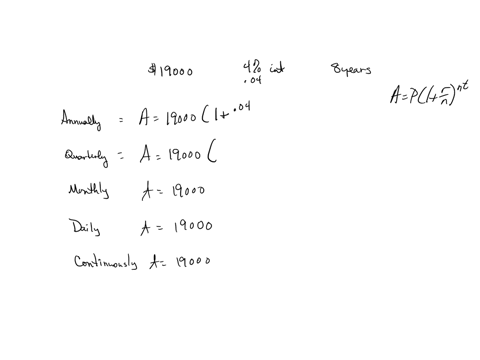 $19000 4% int 8 years
.04
A = P(1 + r/n)^nt
Annually = A = 19000 (1 + .04
Quarterly = A = 19000 (
Monthly A = 19000
Daily A = 19000
Continuously A = 19000